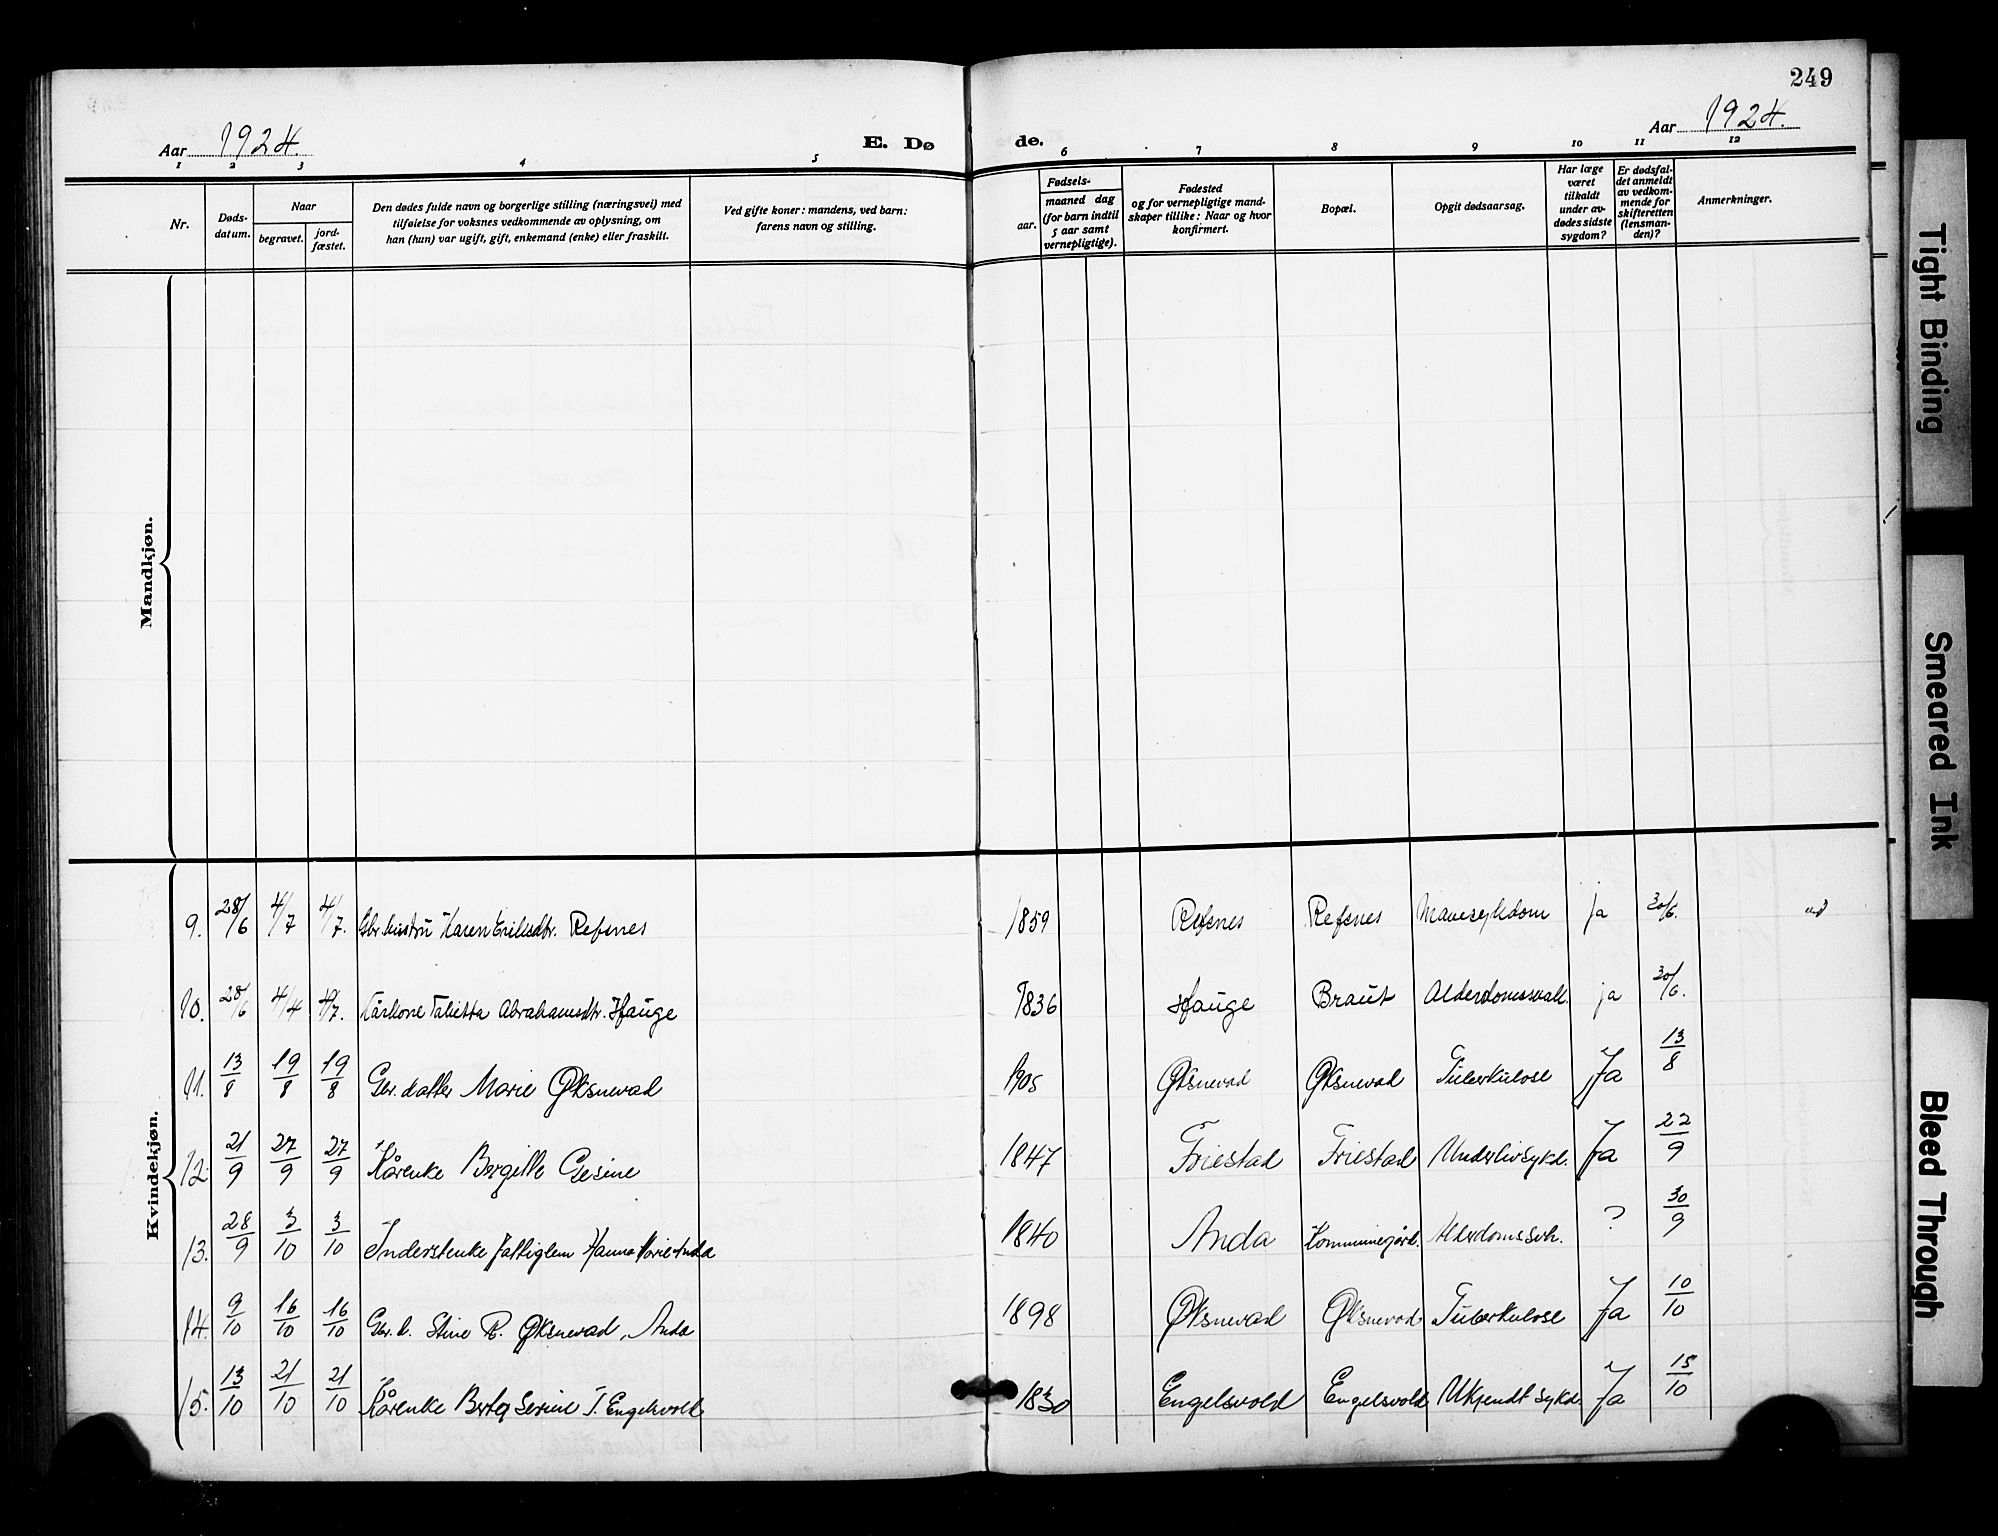 249
Aar 1924.
E. Dø
de.
Aar 1924.
1 2 3 4 5 6 7 8 9 10 11 12
Nr.
Døds-
datum.
Naar
begravet.
jord-
fæstet.
Den dødes fulde navn og borgerlige stilling (næringsvei) med
tilføielse for voksnes vedkommende av oplysning, om
han (hun) var ugift, gift, enkemand (enke) eller fraskilt.
Ved gifte koner: mandens, ved barn:
farens navn og stilling.
Fødsels-
aar.
maaned dag
(for barn indtil
5 aar samt
vernepligtige).
Fødested
og for vernepligtige mand-
skaper tillike: Naar og hvor
konfirmert.
Bopæl.
Opgit dødsaarsag.
Har læge
været
tilkaldt
under av-
dødes sidste
sygdom?
Er dødsfal-
det anmeldt
av vedkom-
mende for
skifteretten
(lensman-
den)?
Anmerkninger.
Mandkjøn.
Kvindekjøn.
9. 28/6 4/7 4/7. Gbr. hustru Karen Eriksdtr. Refsnes 1859 Refsnes Refsnes Mavesykdom ja 30/6.
10. 28/6 4/4 4/7. Kårkone Abrahamsdtr. Hauge 1836 Hauge Braut ja 30/6.
11. 13/8 19/8 19/8 Gbr. datter Marie Øksnevad 1905 Øksnevad Øksnevad Tuberkulose Ja 13/8
12. 21/9 27/9 27/9 Kårenke Bergitte Gesine 1847 Friestad Friestad Underlivsykd. Ja 22/9
13. 28/9 3/10 3/10 Inderstenke fattiglem Hanna Marie Anda 1840 Anda Kommunegård. ? 30/9
14. 9/10 16/10 16/10 Gbr. d. Stine R. Øksnevad, Anda 1898 Øksnevad Øksnevad Tuberkulose Ja 10/10
15. 13/10 21/10 21/10 Kårenke Berta Serine T. Engelsvold 1830 Engelsvold Engelsvold Ukjendt sykd. Ja 15/10
Tight Binding
Smeared Ink
Bleed Through